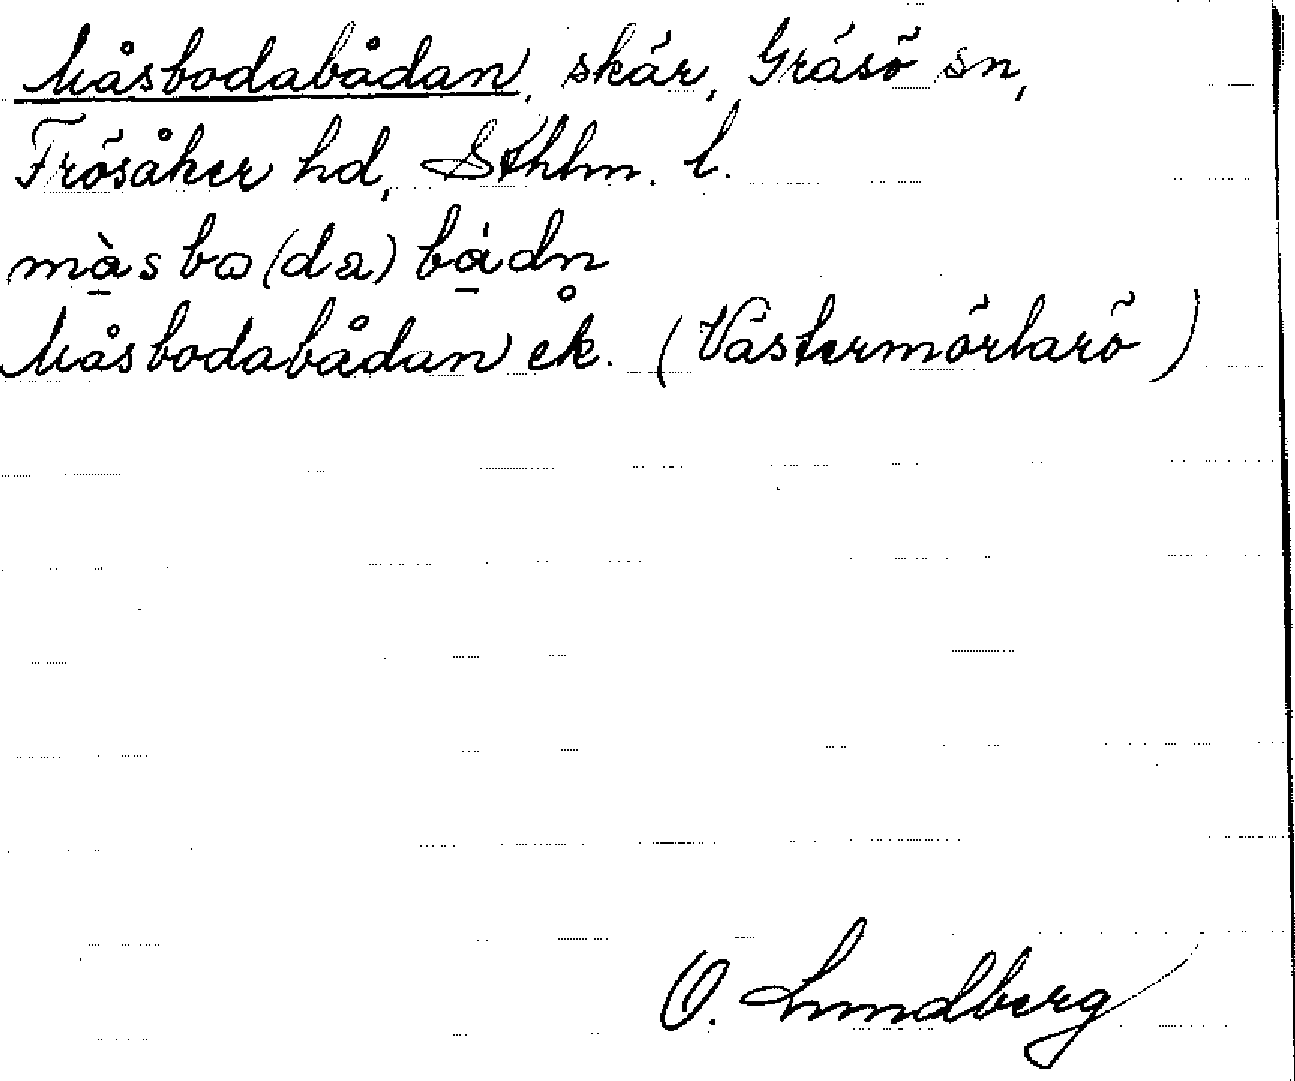 Måsbodabådan, skär, Gräsö sn,
Frösåker hd, Sthlm. l.
mà̱sbo(da)bá̱dn̥
Måsbodabådan ek. (Västermörtarö)
O. Lundberg